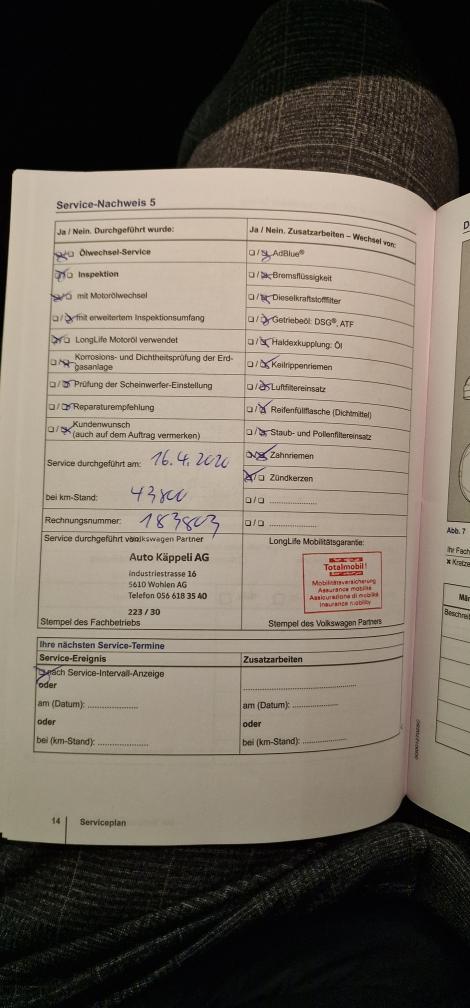 Service-Nachweis 5
Ja / Nein. Durchgeführt wurde:
Ölwechsel-Service
Inspektion
mit Motorölwechsel
mit erweitertem Inspektionsumfang
LongLife Motoröl verwendet
Korrosions- und Dichtheitsprüfung der Erd-
gasanlage
Prüfung der Scheinwerfer-Einstellung
Reparaturempfehlung
Kundenwunsch
(auch auf dem Auftrag vermerken)
Service durchgeführt am: 16.4.2020
bei km-Stand: 43800
Rechnungsnummer: 183803
Service durchgeführt von
Volkswagen Partner
Auto Käppeli AG
Industriestrasse 16
5610 Wohlen AG
Telefon 056 618 35 40
223 / 30
Stempel des Fachbetriebs
Ja / Nein. Zusatzarbeiten – Wechsel von:
AdBlue®
Bremsflüssigkeit
Dieselkraftstofffilter
Getriebeöl: DSG®, ATF
Haldexkupplung: Öl
Keilrippenriemen
Luftfiltereinsatz
Reifenfüllflasche (Dichtmittel)
Staub- und Pollenfiltereinsatz
Zahnriemen
Zündkerzen
LongLife Mobilitätsgarantie:
Totalmobil!
Mobilitätsversicherung
Assurance mobilité
Assicurazione di mobilità
Insurance mobility
Stempel des Volkswagen Partners
Ihre nächsten Service-Termine
Service-Ereignis
nach Service-Intervall-Anzeige
oder
am (Datum):
oder
bei (km-Stand):
Zusatzarbeiten
am (Datum):
oder
bei (km-Stand):
14 Serviceplan
Abb. 7
Ihr Fach
Kreuze
Beschrei